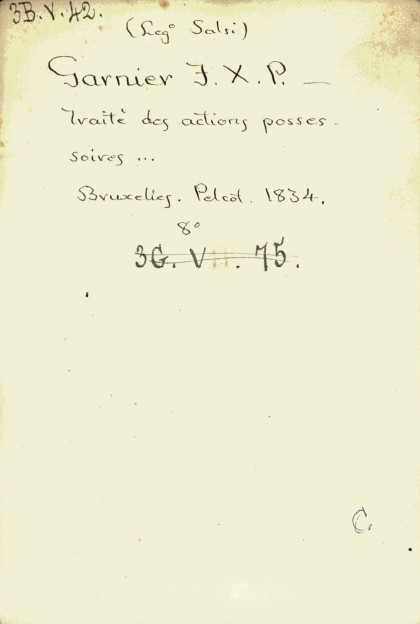 3B.V.42.
(Legº Salsi)
Garnier F.X.P. —
Traitè des actions posses-
soires ...
Bruxelles. Pelcot. 1834.
8º
3G. V . 75.
C.